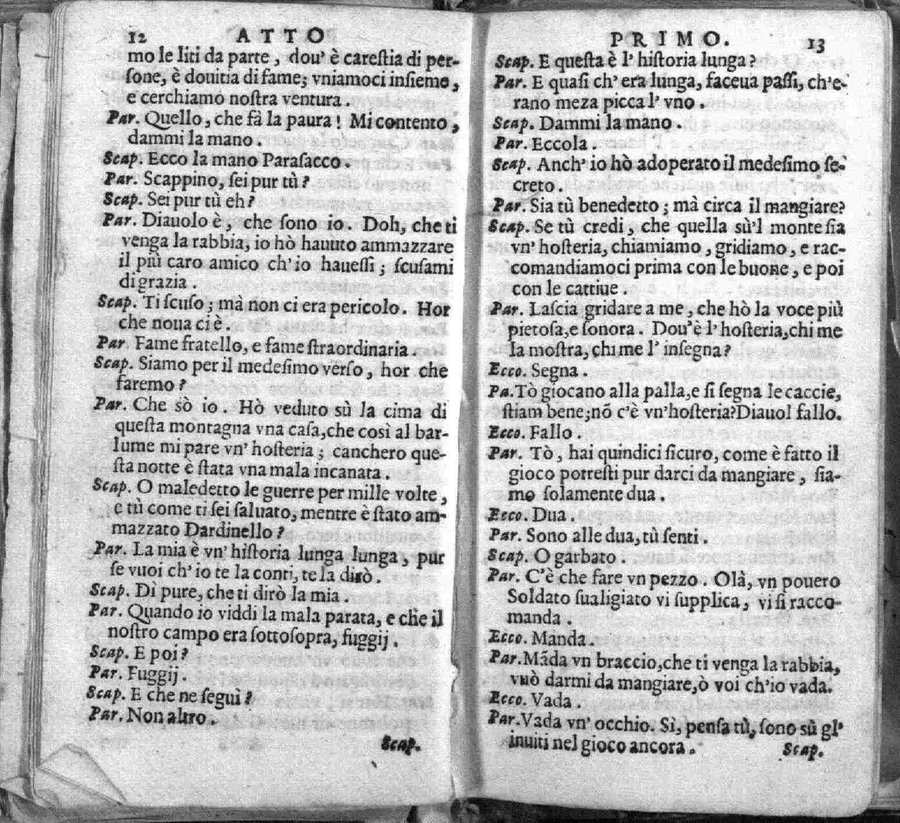 12 ATTO
mo le liti da parte, dou' è careſtia di per-
ſone, è douitia di fame; vniamoci inſieme,
e cerchiamo noſtra ventura.
Par. Quello, che fà la paura! Mi contento,
dammi la mano.
Scap. Ecco la mano Paraſacco.
Par. Scappino, ſei pur tù?
Scap. Sei pur tù eh?
Par. Diauolo è, che ſono io. Doh, che ti
venga la rabbia, io hò hauuto ammazzare
il più caro amico ch'io haueſſi; ſcuſami
di grazia.
Scap. Ti ſcuſo; mà non ci era pericolo. Hor
che noua ci è.
Par. Fame fratello, e fame ſtraordinaria.
Scap. Siamo per il medeſimo verſo, hor che
faremo?
Par. Che sò io. Hò veduto sù la cima di
queſta montagna vna caſa, che così al bar-
lume mi pare vn' hoſteria; canchero que-
ſta notte è ſtata vna mala incanata.
Scap. O maledetto le guerre per mille volte,
e tù come ti ſei ſaluato, mentre è ſtato am-
mazzato Dardinello?
Par. La mia è vn' hiſtoria lunga lunga, pur
ſe vuoi ch'io te la conti, te la dirò.
Scap. Dì pure, che ti dirò la mia.
Par. Quando io viddi la mala parata, e che il
noſtro campo era ſottoſopra, fuggij.
Scap. E poi?
Par. Fuggij.
Scap. E che ne ſeguì?
Par. Non altro.
Scap.
PRIMO. 13
Scap. E queſta è l' hiſtoria lunga?
Par. E quaſi ch'era lunga, faceua paſſi, ch'e-
rano meza picca l' vno.
Scap. Dammi la mano.
Par. Eccola.
Scap. Anch' io hò adoperato il medeſimo ſe-
creto.
Par. Sia tù benedetto; mà circa il mangiare?
Scap. Se tù credi, che quella sù'l monte ſia
vn' hoſteria, chiamiamo, gridiamo, e rac-
comandiamoci prima con le buone, e poi
con le cattiue.
Par. Laſcia gridare a me, che hò la voce più
pietoſa, e ſonora. Dou'è l'hoſteria, chi me
la moſtra, chi me l' inſegna?
Ecco. Segna.
Pa. Tò giocano alla palla, e ſi ſegna le caccie,
ſtiam bene; nõ c'è vn'hoſteria? Diauol fallo.
Ecco. Fallo.
Par. Tò, hai quindici ſicuro, come è fatto il
gioco potreſti pur darci da mangiare, ſia-
mo ſolamente dua.
Ecco. Dua.
Par. Sono alle dua, tù ſenti.
Scap. O garbato.
Par. C'è che fare vn pezzo. Olà, vn pouero
Soldato ſualigiato vi ſupplica, vi ſi racco-
manda.
Ecco. Manda.
Par. Mãda vn braccio, che ti venga la rabbia,
vuò darmi da mangiare, ò voi ch'io vada.
Ecco. Vada.
Par. Vada vn' occhio. Sì, penſa tù, ſono sù gl'
inuiti nel gioco ancora.
Scap.